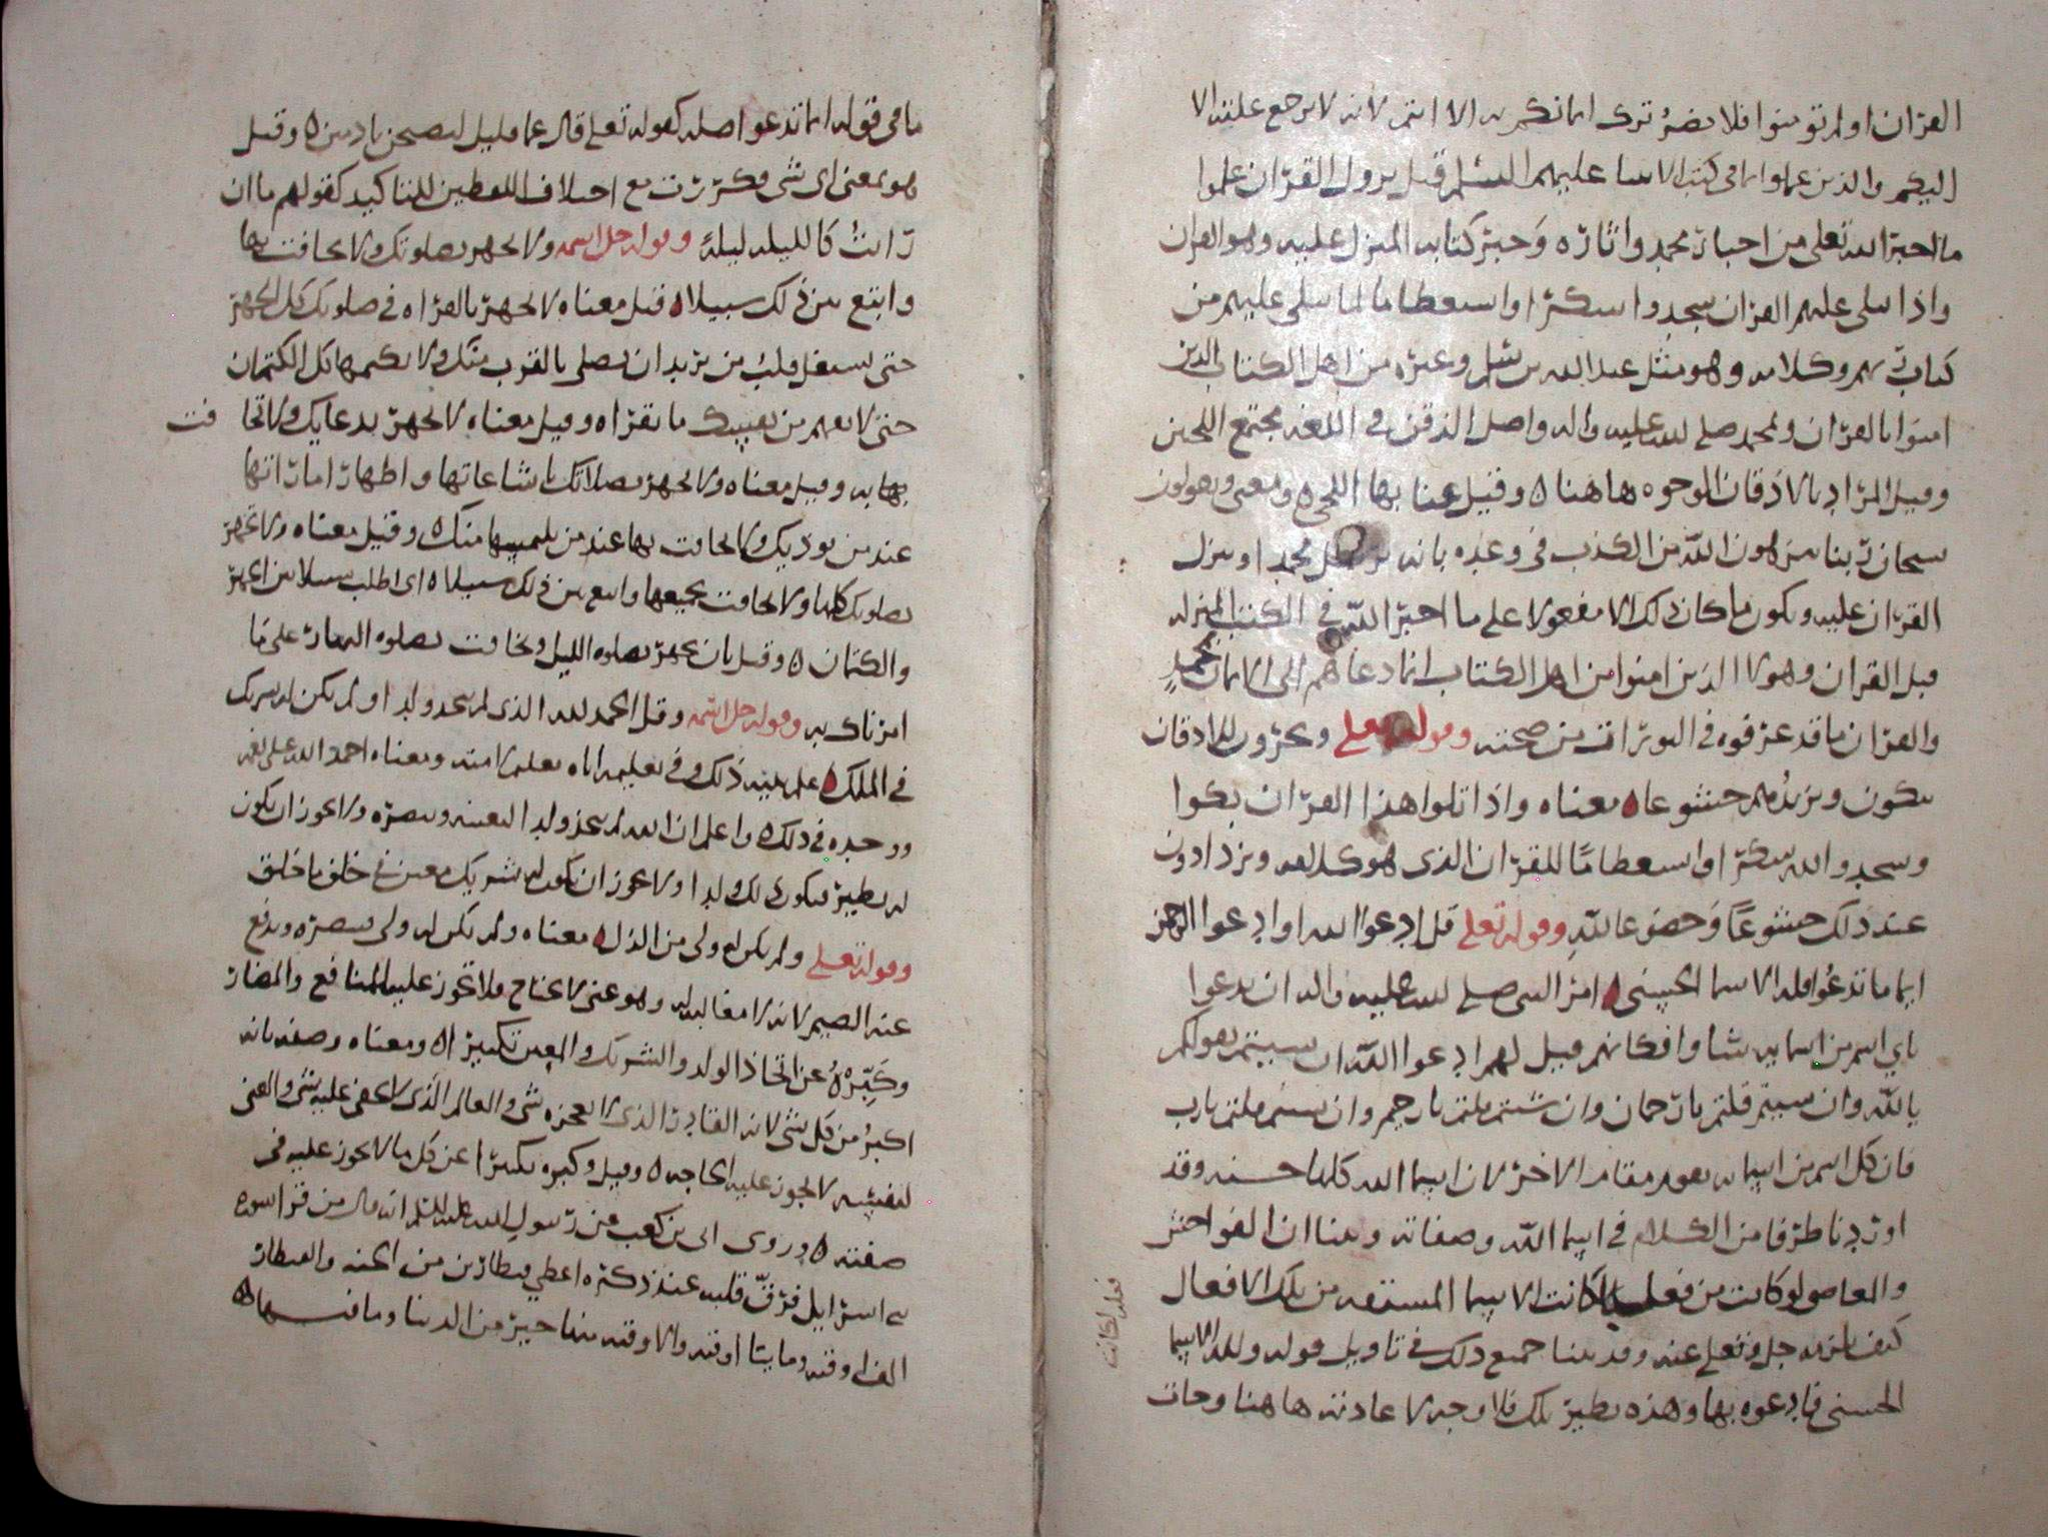 القران او لم تومنوا فلا يضر ترك ايمانكم به الا انتم لانه لا يرجع علينا لا
اليكم والذين علموا ما في كتب الانبيا عليهم السلم قبل نزول القران علموا
ما اخبر الله تعلى من اخبار محمد واثاره وخبر كتابه المنزل عليه وهو القران
واذا يتلى عليهم القران سجدوا شكرا واستعظاما لما يتلى عليهم من
كتاب ربهم وكلامه وهو مثل عبد الله بن سلم وغيره من اهل الكتاب الذين
امنوا بالقران ومحمد صلى الله عليه واله واصل الذقن في اللغه مجتمع اللحيين
وقيل المراد بالاذقان الوجوه هاهنا ه وقيل عنا بها اللحى ه ومعنى ويقولون
سبحان ربنا ينزهون الله من الكذب في وعده بانه يرسل محمدا وينزل
القران عليه ويكون ما كان ذلك الا مفعولا على ما اخبر الله في الكتب المنزله
قبل القران وهولا الذين امنوا من اهل الكتاب انما دعاهم الى الايمان بمحمد
والقران ما قد عرفوه في التورات من صحته وقوله تعلى ويخرون للاذقان
يبكون ويزيدهم خشوعا ه معناه واذا تلوا هذا القران بكوا
وسجدوا لله شكرا واستعظاما للقران الذي هو كلامه ويزدادون
عند ذلك خشوعا وخضوعا لله وقوله تعلى قل ادعوا الله او ادعوا الرحمن
ايا ما تدعوا فله الاسما الحسنى ه امر النبي صلى الله عليه واله ان يدعوا
باي اسم من اسمايه شاوا فكانه قيل لهم ادعوا الله ان شيتم بقولكم
يالله وان شيتم قلتم يا رحمان وان شيتم قلتم يا رحيم وان شيتم قلتم يا رب
فان كل اسم من اسمايه يقوم مقام الاخر لان اسما الله كلها حسنه وقد
اوردنا طرفا من الكلام في اسما الله وصفاته وبينا ان الفواحش
والمعاصي لو كانت من فعله لكانت الاسما المشتقه من تلك الافعال
فعله لكانت
كيف يلزمه جل وتعلى عنه وقد بينا جميع ذلك في تاويل قوله ولله الاسما
الحسنى فادعوه بها وهذه نظير تلك فلا وجه لاعادته هاهنا وجات
ما في قوله ايا ما تدعوا صله كقوله تعلى قال عما قليل ليصبحن نادمين ه وقيل
هو بمعنى اي شي فكررت مع اختلاف اللفظين للتاكيد كقولهم ما ان
رايت كالليله ليله وقوله جل اسمه ولا تجهر بصلوتك ولا تخافت بها
وابتغ بين ذلك سبيلا ه قيل معناه لا تجهر بالقراه في صلوتك كل الجهر
حتى يشتغل قلب من يريد ان يصلي بالقرب منك ولا تكتمها كل الكتمان
حتى لا تفهم من نفسك ما تقراه وقيل معناه لا تجهر بدعايك ولا تخا فت
بها به وقيل معناه ولا تجهر بصلاتك باشاعاتها واظهار اماراتها
عند من يوذيك ولا تخافت بها عند من يلتمسها منك ه وقيل معناه ولا تجهر
بصلوتك كلها ولا تخافت بجميعها وابتغ بين ذلك سبيلا ه اي اطلب سبيلا بين الجهر
والكتمان ه وقيل بان تجهر بصلوه الليل وتخافت بصلوه النهار على ما
امرناك به وقوله جل اسمه وقل الحمد لله الذي لم يتخذ ولدا ولم يكن له شريك
في الملك ه علم نبيه ذلك وفي تعليمه اياه تعليم لامته ومعناه احمد الله على نعمه
ووحده في ذلك ه واعلم ان الله لم يتخذ ولدا لنفسه وينصره ولا يجوز ان يكون
له نظير فيكون ذلك ولدا ولا يجوز ان يكون له شريك معين في خلق ما خلق
وقوله تعلى ولم يكن له ولي من الذل ه معناه ولم يكن له ولي ينصره ويدفع
عنه الضيم لانه لا مغالب له وهو غني لا يحتاج فلا تجوز عليه المنافع والمضار
وكبره عن اتخاذ الولد والشريك والمعين تكبيرا ه ومعناه وصفه بانه
اكبر من كل شي لانه القادر الذي لا يعجزه شي والعالم الذي لا يخفى عليه شي والغني
لنفسه لا تجوز عليه الحاجه ه وقيل وكبره تكبيرا عن كل ما لا يجوز عليه في
صفته ه وروى ابي بن كعب عن رسول الله عليه السلم انه قال من قرا سوره
بني اسرايل فرق قلبه عند ذكره اعطي قنطارين من الجنه والقنطار
الف اوقيه وماىتا اوقيه والاوقيه منها خير من الدنيا وما فيها ه